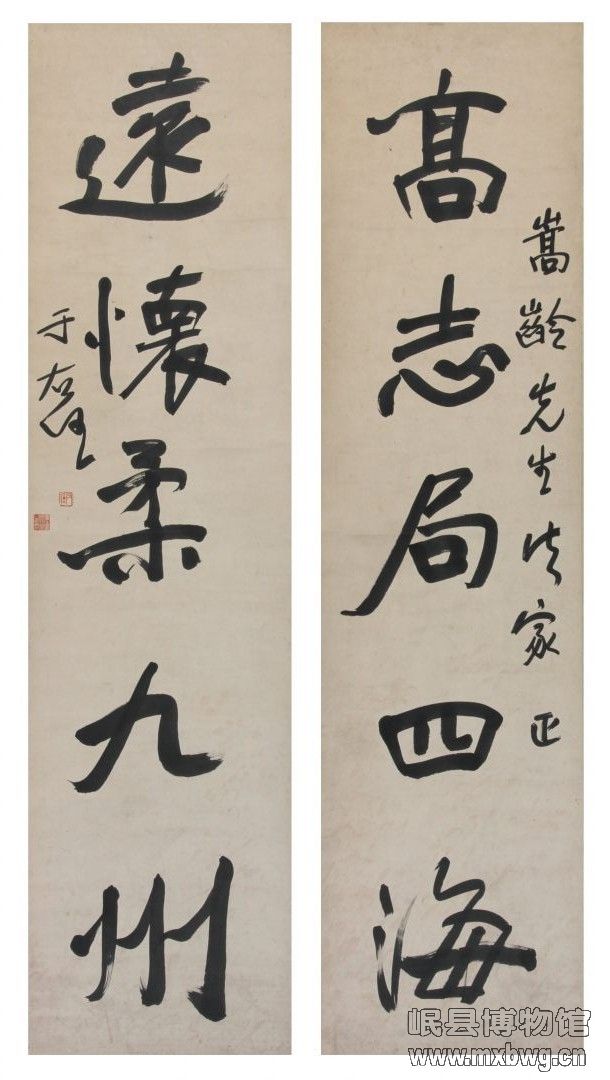 高志局四海
嵩齡先生法家正
遠懷柔九州
于右任
岷县博物馆
www.mxbwg.cn